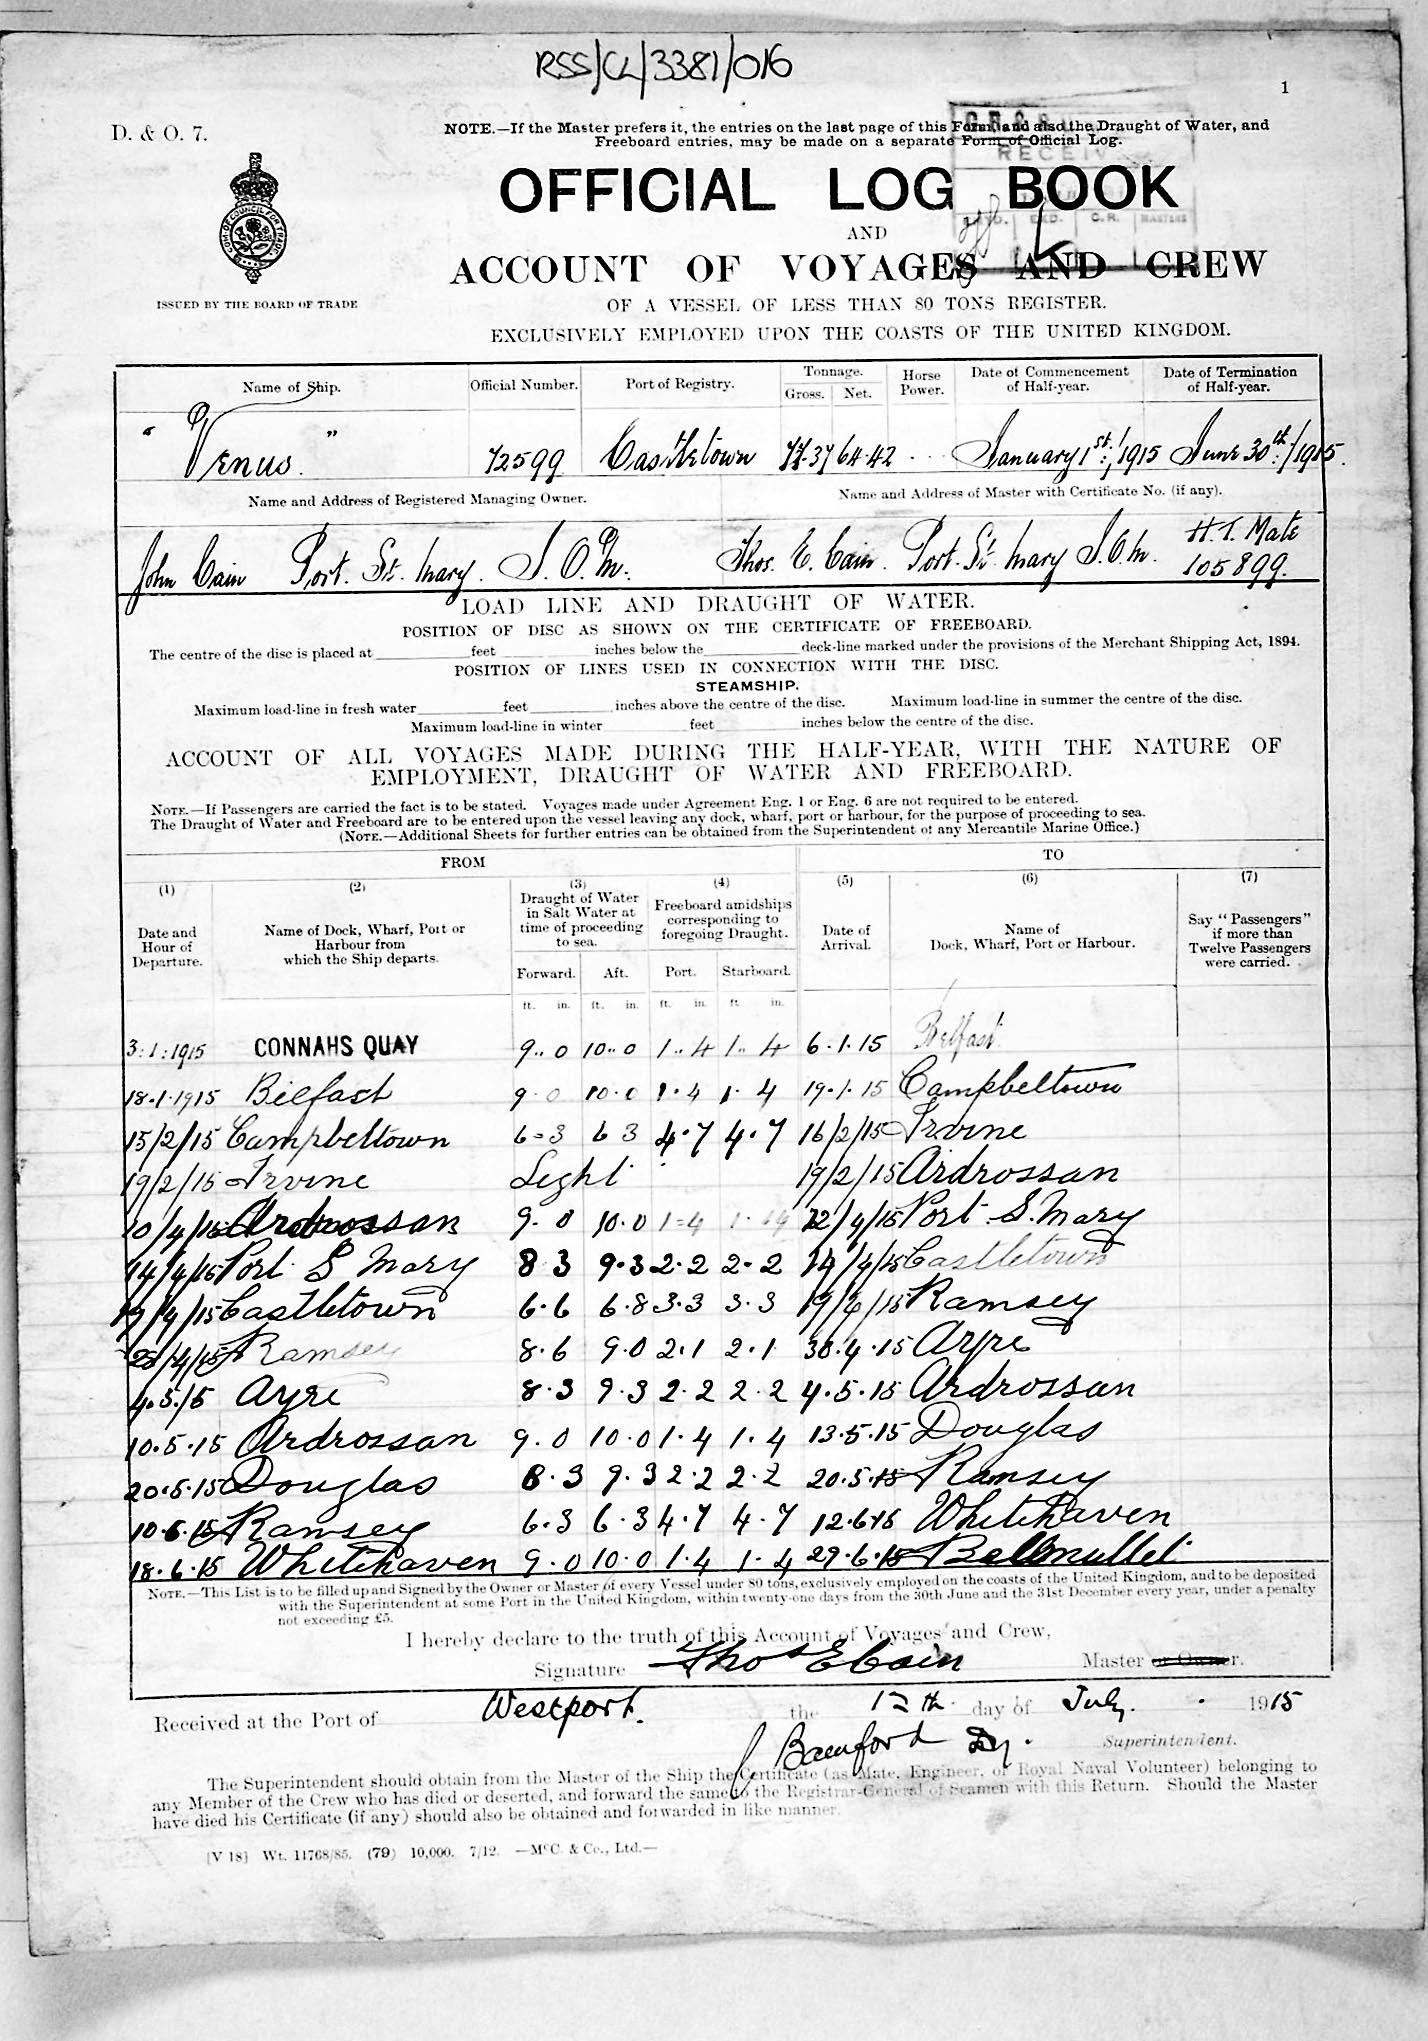 RSS/CL/3381/016
1
D. & O. 7.
NOTE.—If the Master prefers it, the entries on the last page of this Form, and also the Draught of Water, and
Freeboard entries, may be made on a separate Form of Official Log.
RECEIV
OFFICIAL LOG BOOK
AND
ACCOUNT OF VOYAGES AND CREW
ISSUED BY THE BOARD OF TRADE
OF A VESSEL OF LESS THAN 80 TONS REGISTER.
EXCLUSIVELY EMPLOYED UPON THE COASTS OF THE UNITED KINGDOM.
Name of Ship. Official Number. Port of Registry. Tonnage. Gross. Net. Horse Power. Date of Commencement of Half-year. Date of Termination of Half-year.
"Venus." 72599 Castletown 77.37 64.42 January 1st, 1915 June 30th/1915.
Name and Address of Registered Managing Owner. Name and Address of Master with Certificate No. (if any).
John Cain Port. St. Mary. I.O.M. Thos. E. Cain. Port. St. Mary I.O.M. H.T. Mate
105899.
LOAD LINE AND DRAUGHT OF WATER.
POSITION OF DISC AS SHOWN ON THE CERTIFICATE OF FREEBOARD.
The centre of the disc is placed at feet inches below the deck-line marked under the provisions of the Merchant Shipping Act, 1894.
POSITION OF LINES USED IN CONNECTION WITH THE DISC.
STEAMSHIP.
Maximum load-line in fresh water feet inches above the centre of the disc. Maximum load-line in summer the centre of the disc.
Maximum load-line in winter feet inches below the centre of the disc.
ACCOUNT OF ALL VOYAGES MADE DURING THE HALF-YEAR, WITH THE NATURE OF
EMPLOYMENT, DRAUGHT OF WATER AND FREEBOARD.
NOTE.—If Passengers are carried the fact is to be stated. Voyages made under Agreement Eng. 1 or Eng. 6 are not required to be entered.
The Draught of Water and Freeboard are to be entered upon the vessel leaving any dock, wharf, port or harbour, for the purpose of proceeding to sea.
(NOTE.—Additional Sheets for further entries can be obtained from the Superintendent of any Mercantile Marine Office.)
FROM TO
(1) (2) (3) (4) (5) (6) (7)
Date and Hour of Departure. Name of Dock, Wharf, Port or Harbour from which the Ship departs. Draught of Water in Salt Water at time of proceeding to sea. Freeboard amidships corresponding to foregoing Draught. Date of Arrival. Name of Dock, Wharf, Port or Harbour. Say "Passengers" if more than Twelve Passengers were carried.
Forward. Aft. Port. Starboard.
ft. in. ft. in. ft. in. ft. in.
3.1.1915 CONNAHS QUAY 9.0 10.0 1.4 1.4 6.1.15 Belfast
18.1.1915 Belfast 9 0 10.0 1.4 1.4 19.1.15 Campbeltown
15/2/15 Campbeltown 6-3 6 3 4.7 4.7 16/2/15 Irvine
19/2/15 Irvine Light 19/2/15 Ardrossan
10/4/15 Ardrossan 9.0 10.0 1-4 12/4/15 Port S. Mary
14/4/15 Port S Mary 8 3 9.3 2.2 2.2 14/4/15 Castletown
19/4/15 Castletown 6.6 6.8 3.3 3.3 19/4/15 Ramsey
28/4/15 Ramsey 8.6 9.0 2.1 2.1 30.4.15 Ayre
4.5.15 Ayre 8.3 9.3 2.2 2.2 4.5.15 Ardrossan
10.5.15 Ardrossan 9.0 10.0 1.4 1.4 13.5.15 Douglas
20.5.15 Douglas 8.3 9.3 2.2 2.2 20.5.15 Ramsey
10.6.15 Ramsey 6.3 6.3 4.7 4.7 12.6.15 Whitehaven
18.6.15 Whitehaven 9.0 10.0 1.4 1.4 29.6.15 Bellmullet
NOTE.—This List is to be filled up and Signed by the Owner or Master of every Vessel under 80 tons, exclusively employed on the coasts of the United Kingdom, and to be deposited
with the Superintendent at some Port in the United Kingdom, within twenty-one days from the 30th June and the 31st December every year, under a penalty
not exceeding £5.
I hereby declare to the truth of this Account of Voyages and Crew,
Signature Thos E Cain Master or Owner.
Received at the Port of Westport. the 12th day of July. 1915
J Bamford Dy. Superintendent.
The Superintendent should obtain from the Master of the Ship the Certificate (as Mate, Engineer, or Royal Naval Volunteer) belonging to
any Member of the Crew who has died or deserted, and forward the same to the Registrar-General of Seamen with this Return. Should the Master
have died his Certificate (if any) should also be obtained and forwarded in like manner.
[V 18] Wt. 11768/85. (79) 10,000. 7/12. —McC. & Co., Ltd.—